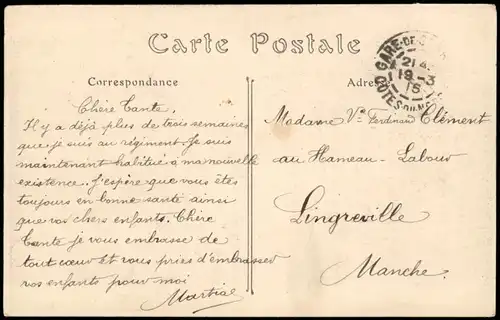 Carte Postale
Correspondance
Chère Tante,
Il y a déjà plus de trois semaines
que je suis au régiment. Je suis
maintenant habitué à ma nouvelle
existence. J'espère que vous êtes
toujours en bonne santé ainsi
que vos chers enfants. Chère
Tante je vous embrasse de
tout cœur et vous pries d'embrasser
vos enfants pour moi
Martial
GARE-DE
21
19-3
15
CÔTES-DU-NORD
Madame Ve Ferdinand Clément
au Hameau-Labour
Lingreville
Manche.